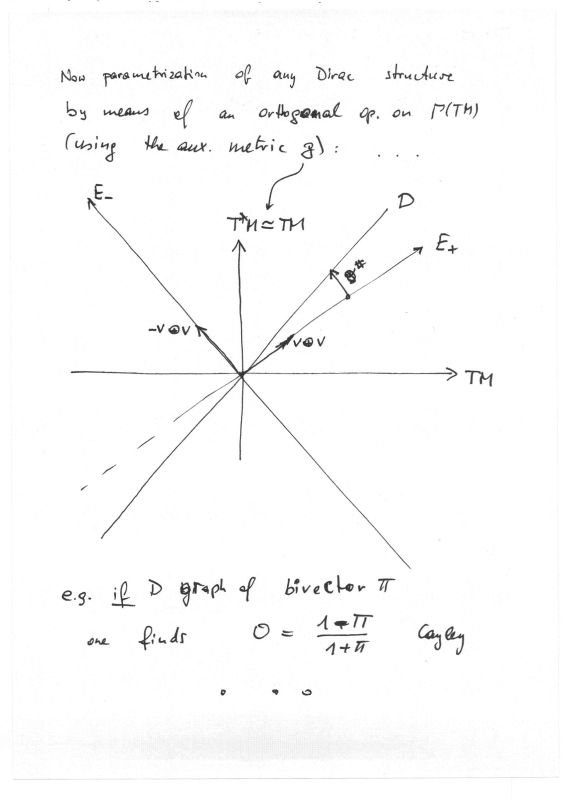 Now parametrization of any Dirac structure
by means of an orthogonal op. on Γ(TM)
(using the aux. metric g): . . . .
E_
T*M ≃ TM
D
E+
-v⊕v
v⊕v
TM
e.g. if D graph of bivector π
one finds O = 1-π / 1+π Cayley